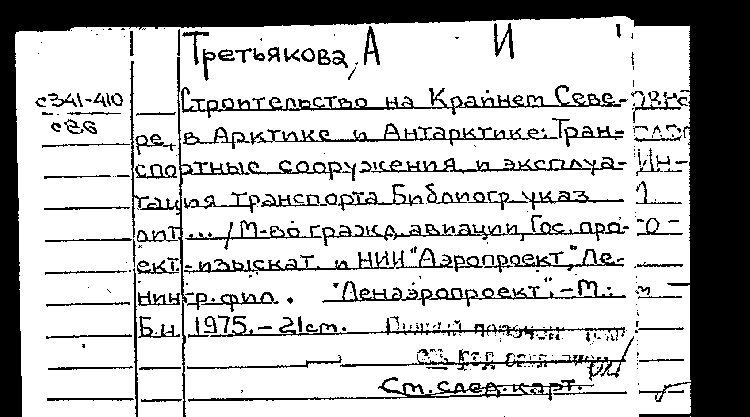 Третьякова, А И
с341-410
с86
Строительство на Крайнем Севе-
ре, в Арктике и Антарктике: Тран-
спортные сооружения и эксплуа-
тация транспорта Библиогр. указ
лит... / М-во гражд. авиации, Гос. про-
ект.-изыскат. и НИИ "Аэропроект", Ле-
нингр. фил. "Ленаэропроект".-М.:
Б.и. 1975.- 21см.
См. след. карт.